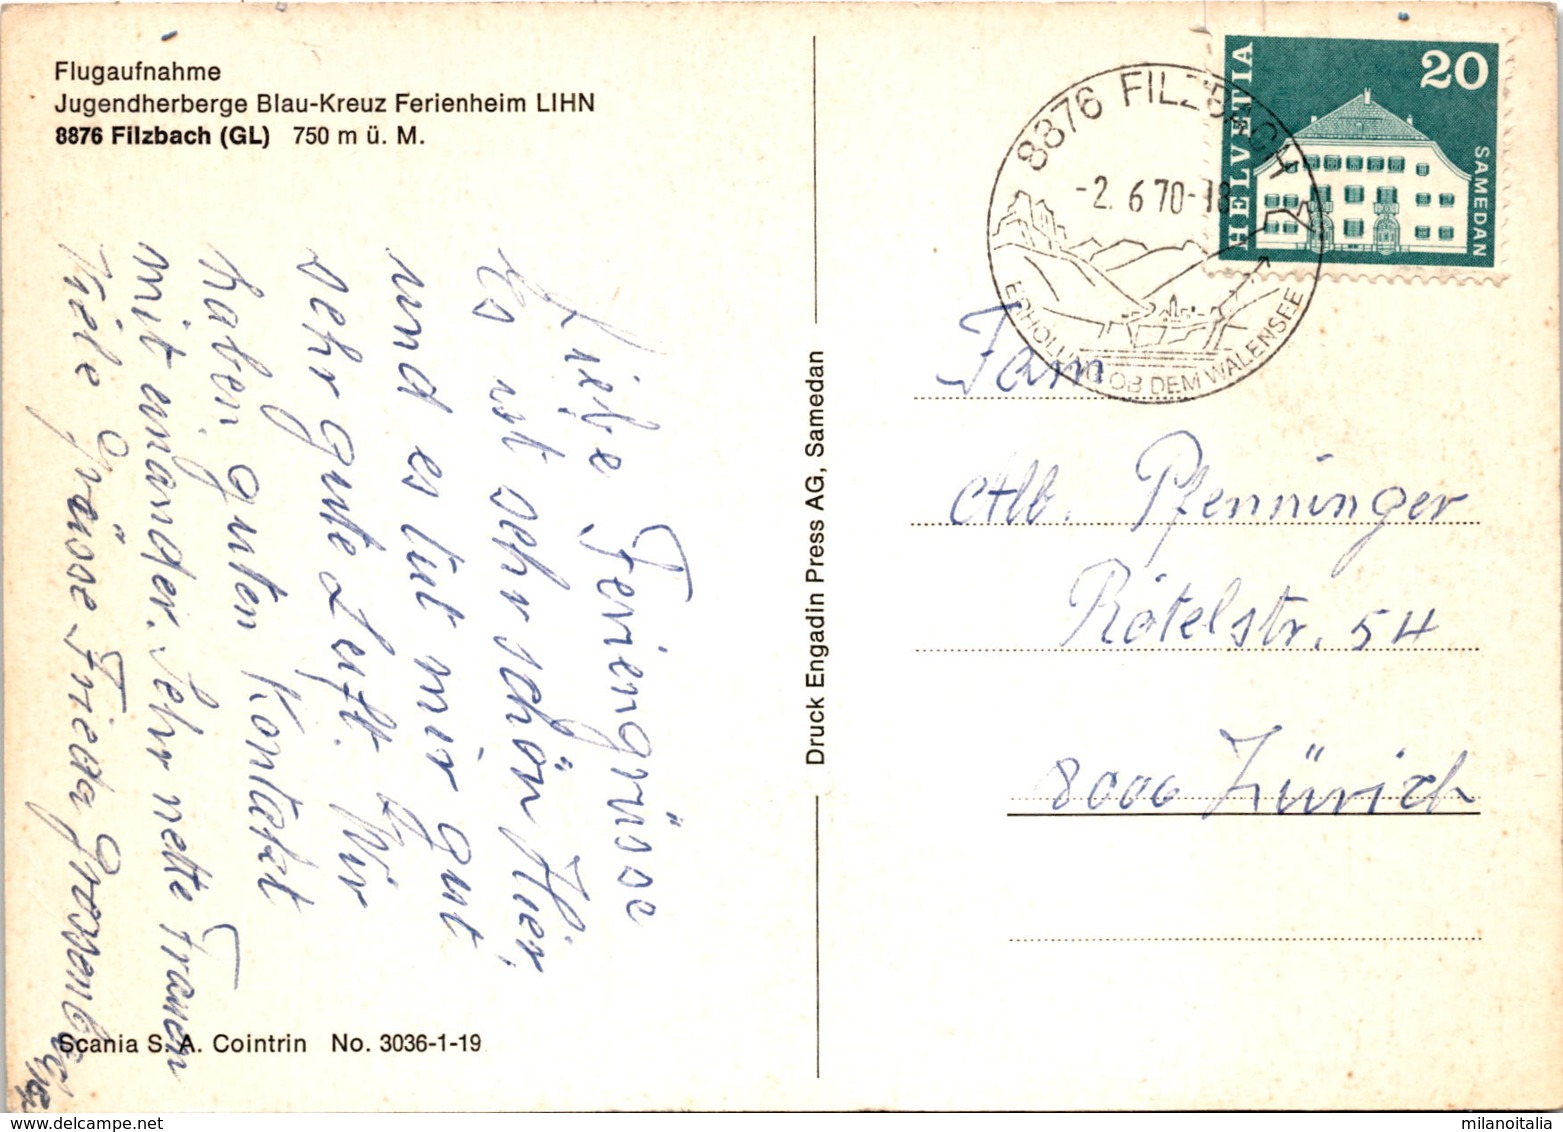 Flugaufnahme
Jugendherberge Blau-Kreuz Ferienheim LIHN
8876 Filzbach (GL) 750 m ü. M.
Liebe Feriengrüsse
Es ist sehr schön Hier,
und es tut mir gut
sehr gute Luft. Wir
haben guten Kontakt
mit einander. Sehr nette Frauen
Viele Grüsse Frieda Grossenb
Scania S. A. Cointrin No. 3036-1-19
Druck Engadin Press AG, Samedan
8876 FILZBACH
-2. 6 70-18
ERHOLUNG OB DEM WALENSEE
HELVETIA
20
SAMEDAN
Fam
Alb. Pfenninger
Rötelstr. 54
8006 Zürich
www.delcampe.net
milanoitalia